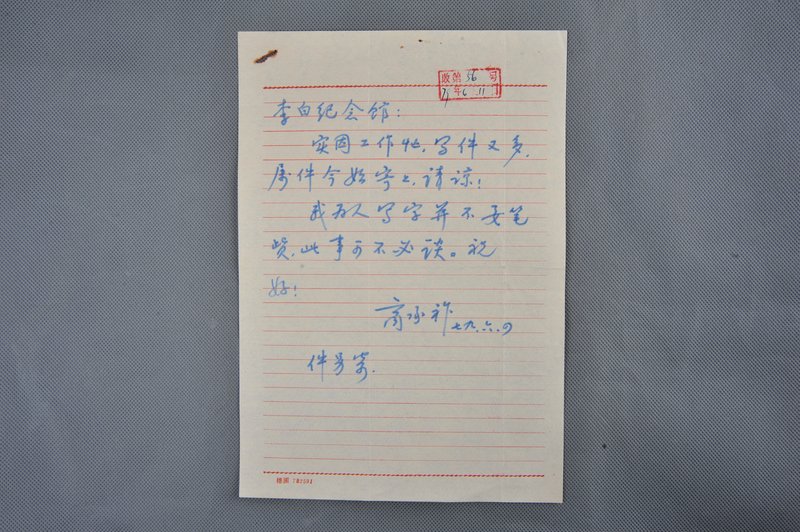 收第56号
79年6.11
李白纪念馆：
实因工作忙，写件又多，
属件今始寄上，请谅！
我为人写字并不要笔
赀，此事可不必谈。祝
好！
商承祚 七九.六.四
件另寄.